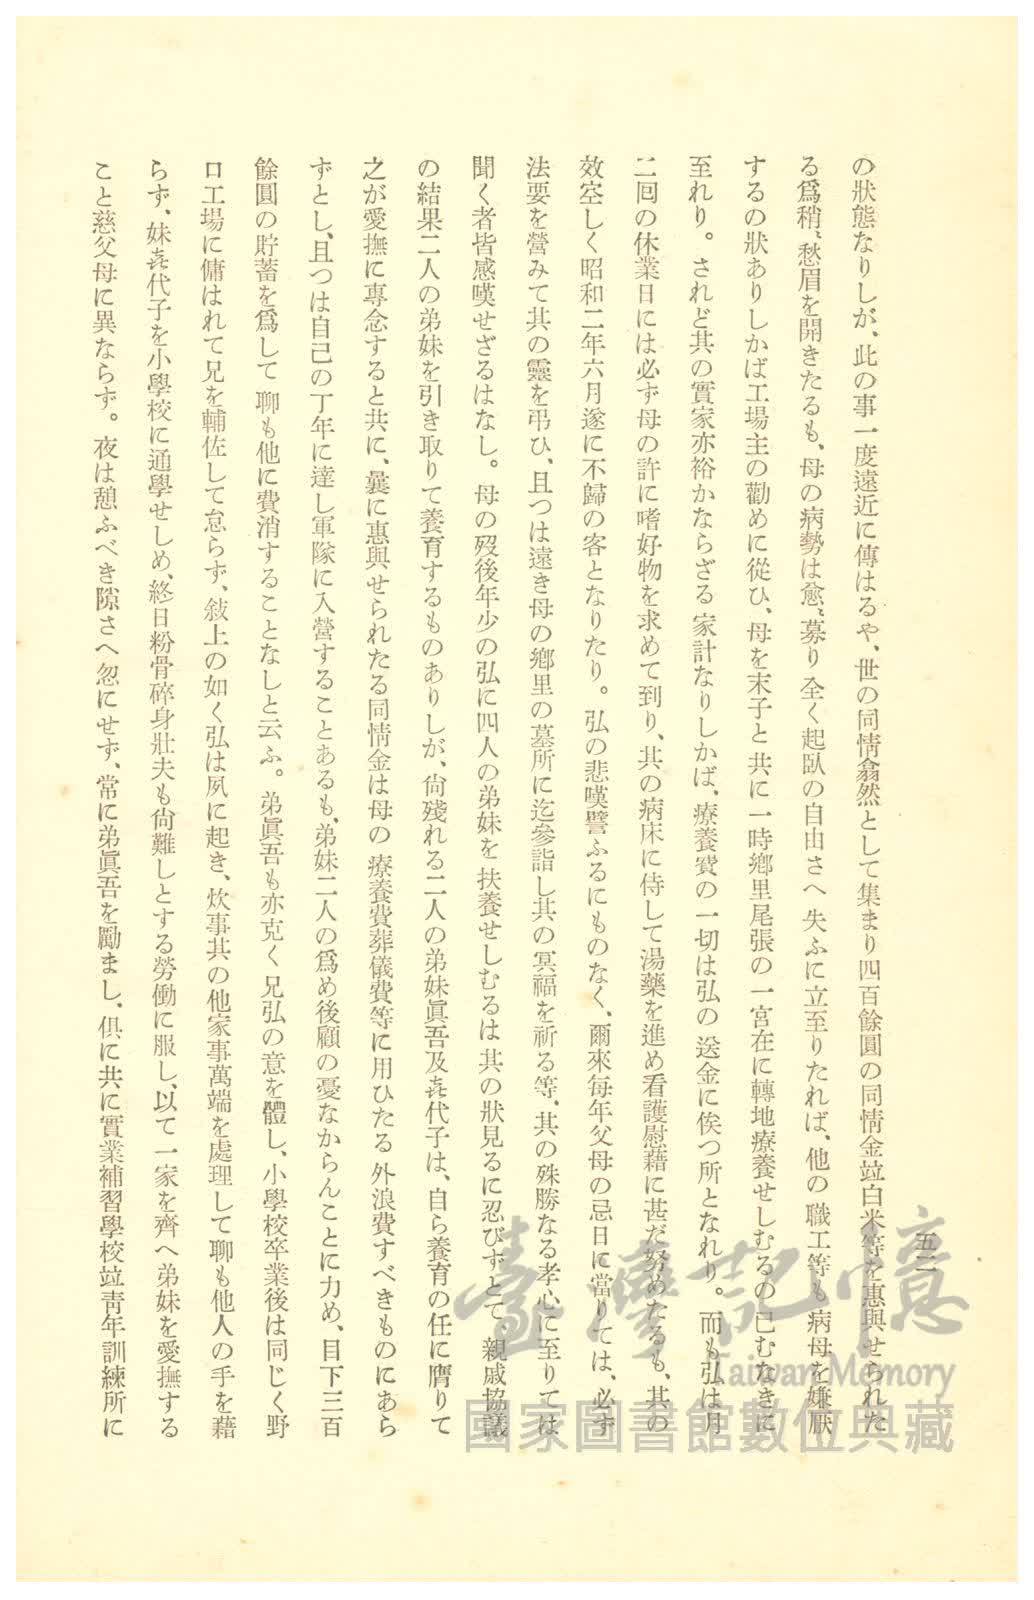 五二
の狀態なりしが、此の事一度遠近に傳はるや、世の同情翕然として集まり四百餘圓の同情金竝白米等を惠與せられた
る爲稍〻愁眉を開きたるも、母の病勢は愈〻募り全く起臥の自由さへ失ふに立至りたれば、他の職工等も病母を嫌厭
するの狀ありしかば工場主の勸めに從ひ、母を末子と共に一時鄕里尾張の一宮在に轉地療養せしむるの已むなきに
至れり。されど其の實家亦裕かならざる家計なりしかば、療養費の一切は弘の送金に俟つ所となれり。而も弘は月
二囘の休業日には必ず母の許に嗜好物を求めて到り、其の病床に侍して湯藥を進め看護慰藉に甚だ努めたるも、其の
效空しく昭和二年六月遂に不歸の客となりたり。弘の悲嘆譬ふるにものなく、爾來每年父母の忌日に當りては、必ず
法要を營みて其の靈を弔ひ、且つは遠き母の鄕里の墓所に迄參詣し其の冥福を祈る等、其の殊勝なる孝心に至りては
聞く者皆感嘆せざるはなし。母の歿後年少の弘に四人の弟妹を扶養せしむるは其の狀見るに忍びずとて、親戚協議
の結果二人の弟妹を引き取りて養育するものありしが、尙殘れる二人の弟妹眞吾及㐂代子は、自ら養育の任に膺りて
之が愛撫に專念すると共に、曩に惠與せられたる同情金は母の療養費葬儀費等に用ひたる外浪費すべきものにあら
ずとし、且つは自己の丁年に達し軍隊に入營することあるも、弟妹二人の爲め後顧の憂なからんことに力め、目下三百
餘圓の貯蓄を爲して聊も他に費消することなしと云ふ。弟眞吾も亦克く兄弘の意を體し、小學校卒業後は同じく野
口工場に傭はれて兄を輔佐して怠らず、敍上の如く弘は夙に起き、炊事其の他家事萬端を處理して聊も他人の手を藉
らず、妹㐂代子を小學校に通學せしめ、終日粉骨碎身壯夫も尙難しとする勞働に服し、以て一家を齊へ弟妹を愛撫する
こと慈父母に異ならず。夜は憩ふべき隙さへ忽にせず、常に弟眞吾を勵まし、俱に共に實業補習學校竝靑年訓練所に
臺灣記憶
Taiwan Memory
國家圖書館數位典藏